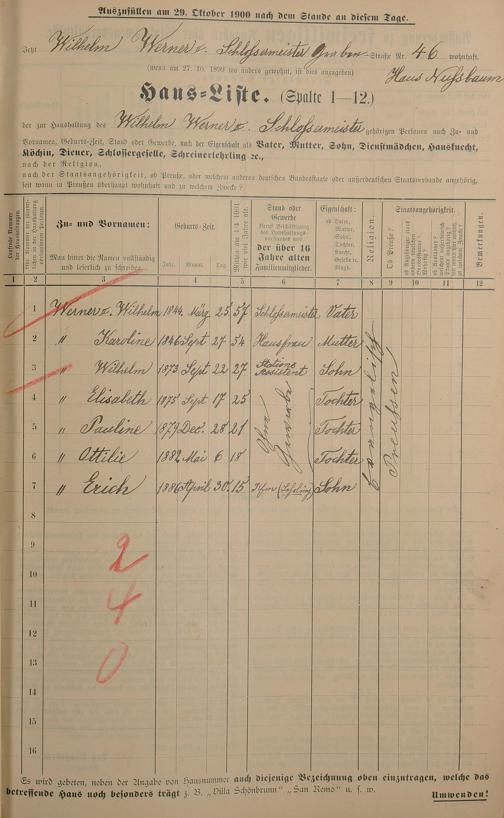 Auszufüllen am 29. Oktober 1900 nach dem Stande an diesem Tage.
Jetzt Wilhelm Werner Schlossermeister Graben-Strasse Nr. 46 wohnhaft.
(wenn am 27. 10. 1899 wo anders gewohnt, ist dies anzugeben) Haus Nussbaum
Haus-Liste. (Spalte 1—12.)
der zur Haushaltung des Wilhelm Werner Schlossermeister gehörigen Personen nach Zu- und
Vornamen, Geburts-Zeit, Stand oder Gewerbe, nach der Eigenschaft als Vater, Mutter, Sohn, Dienstmädchen, Hausknecht,
Köchin, Diener, Schlossergeselle, Schreinerlehrling ꝛc.,
nach der Religion,
nach der Staatsangehörigkeit, ob Preuße, oder welchem anderen deutschen Bundesstaate oder außerdeutschen Staatsverbande angehörig,
seit wann in Preußen überhaupt wohnhaft und zu welchem Zwecke?
Zu- und Vornamen:
Man bittet die Namen vollständig
und leserlich zu schreiben
Geburts-Zeit.
Jahr. Monat. Tag.
Stand oder
Gewerbe
der über 16
Jahre alten
Familienmitglieder.
Eigenschaft:
Religion.
Staatsangehörigkeit.
Ob Preuße?
Bemerkungen.
1 2 3 4 5 6 7 8 9 10 11 12
1 Werner Wilhelm 1844 März 25 57 Schlossermeister Vater
2 " Karoline 1846 Sept 27 54 Hausfrau Mutter
3 " Wilhelm 1873 Sept 22 27 Stations Assistent Sohn
4 " Elisabeth 1875 Sept 17 25 Tochter
5 " Pauline 1879 Dez. 28 21 Tochter
6 " Ottilie 1882 Mai 6 18 Tochter
7 " Erich 1886 April 30 15 (Lehrling) Sohn
Ohne Gewerbe
evangelisch
Preussen
8
9
10
11
12
13
14
15
16
2
4
0
Es wird gebeten, neben der Angabe von Hausnummer auch diejenige Bezeichnung oben einzutragen, welche das
betreffende Haus noch besonders trägt z. B. „Villa Schönbrunn" „San Remo" u. s. w.
Umwenden!